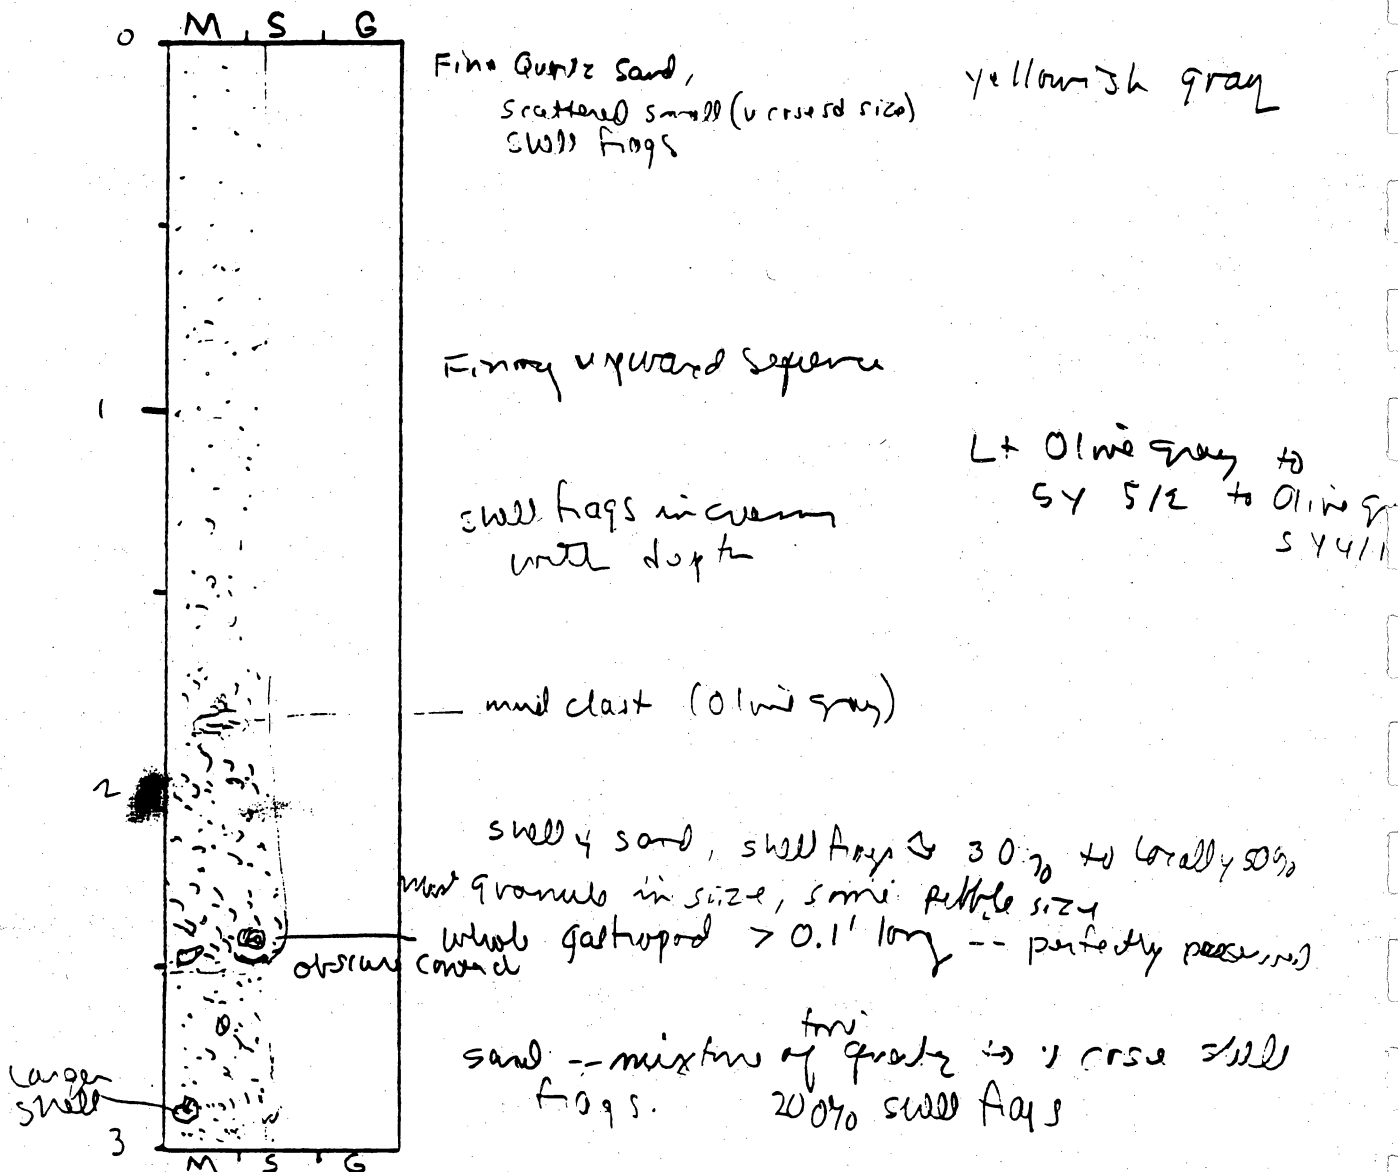 M S G
0
Fine Quartz Sand, yellowish gray
scattered small (v crse sd size)
shell frags
Fining upward sequence
1
Lt Olive gray to
5Y 5/2 to Olive gr
5Y4/1
shell frags increasing
with depth
mud clast (Olive gray)
2
shelly sand, shell frags 30% to locally 50%
most granule in size, some pebble size
whole gastropod > 0.1' long -- perfectly preserved
obscure contact
sand -- mixture of fine quartz to v crse shell
frags. 20% shell frags
Larger
shell
3
M S G